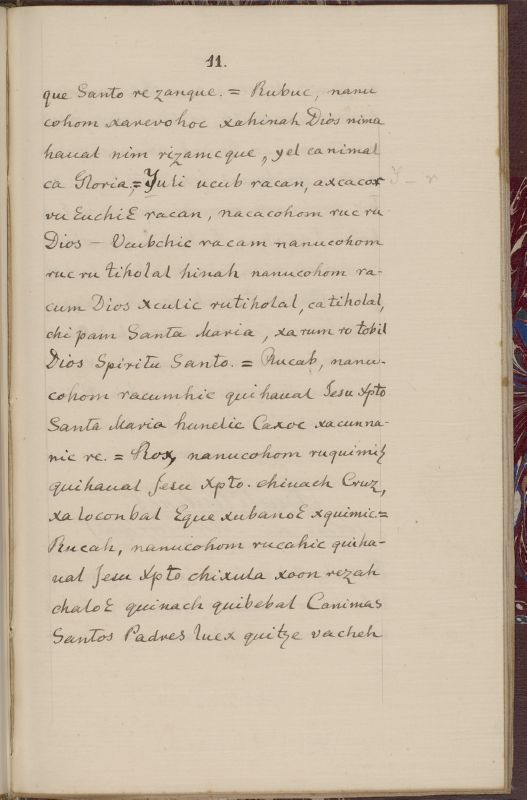 11.
que Santo re zanque. = Rubuc, nanu
cohom xarevohoc xahinah Dios nima
haual nim rizamcque, yel canimal
ca Gloria, = Yuli ucub racan, axcacox
vu Euchi E racan, nacacohom ruc ru
Dios – Vcubchic racam nanucohom
ruc ru tiholal hinah nanucohom ra-
cum Dios xculic rutiholal, catiholal,
chi pam Santa Maria, xa rum ro tobil
Dios Spiritu Santo. = Rucab, nanu-
cohom racumhic quihaual Jesu Xpto
Santa Maria hunelic Caxoc xacunna-
nic re. = Rox, nanucohom ruquimiz
quihaual Jesu Xpto. chiuach Cruz,
xaloconbal Eque xubanoE xquimic =
Rucah, nanucohom rucahic quiha-
ual Jesu Xpto chixula xoon rezah
chaloE quinach quibebal Canimas
Santos Padres luex quitze vacheh